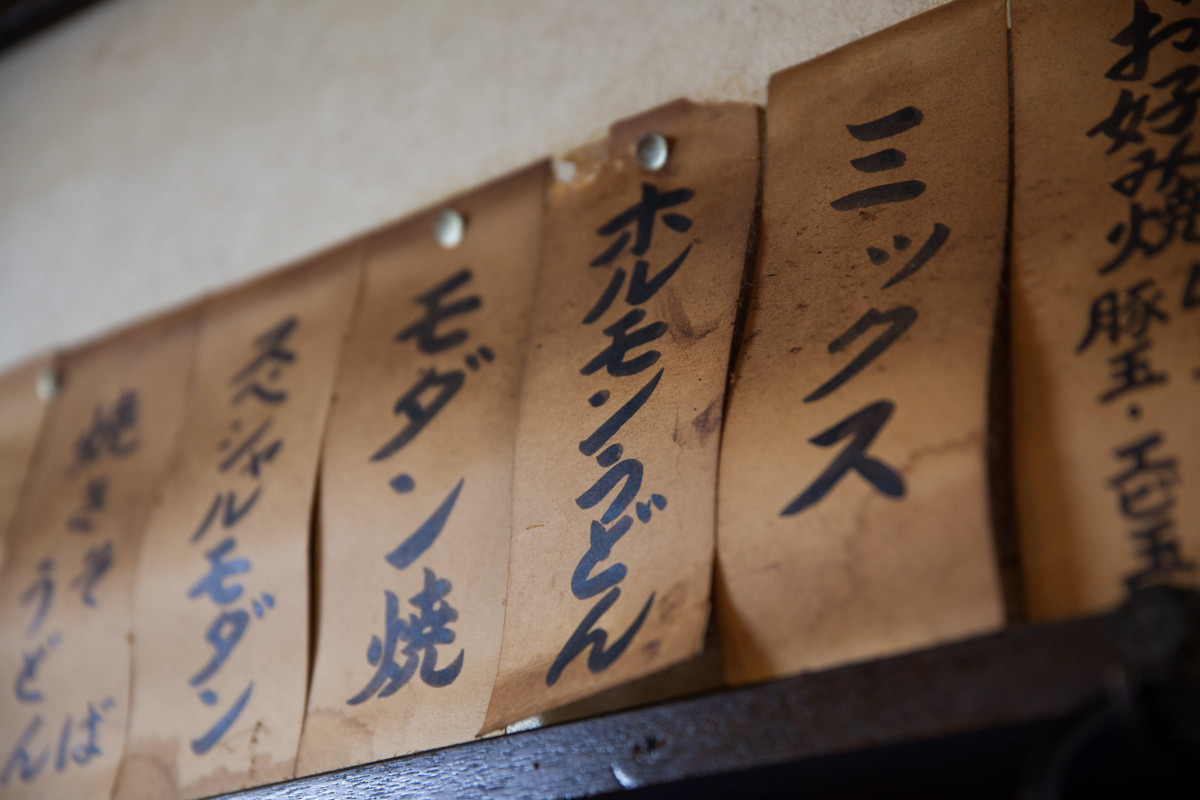 お好み焼
豚玉・エビ玉
ミックス
ホルモンうどん
モダン焼
スペシャルモダン
焼きそば
うどん